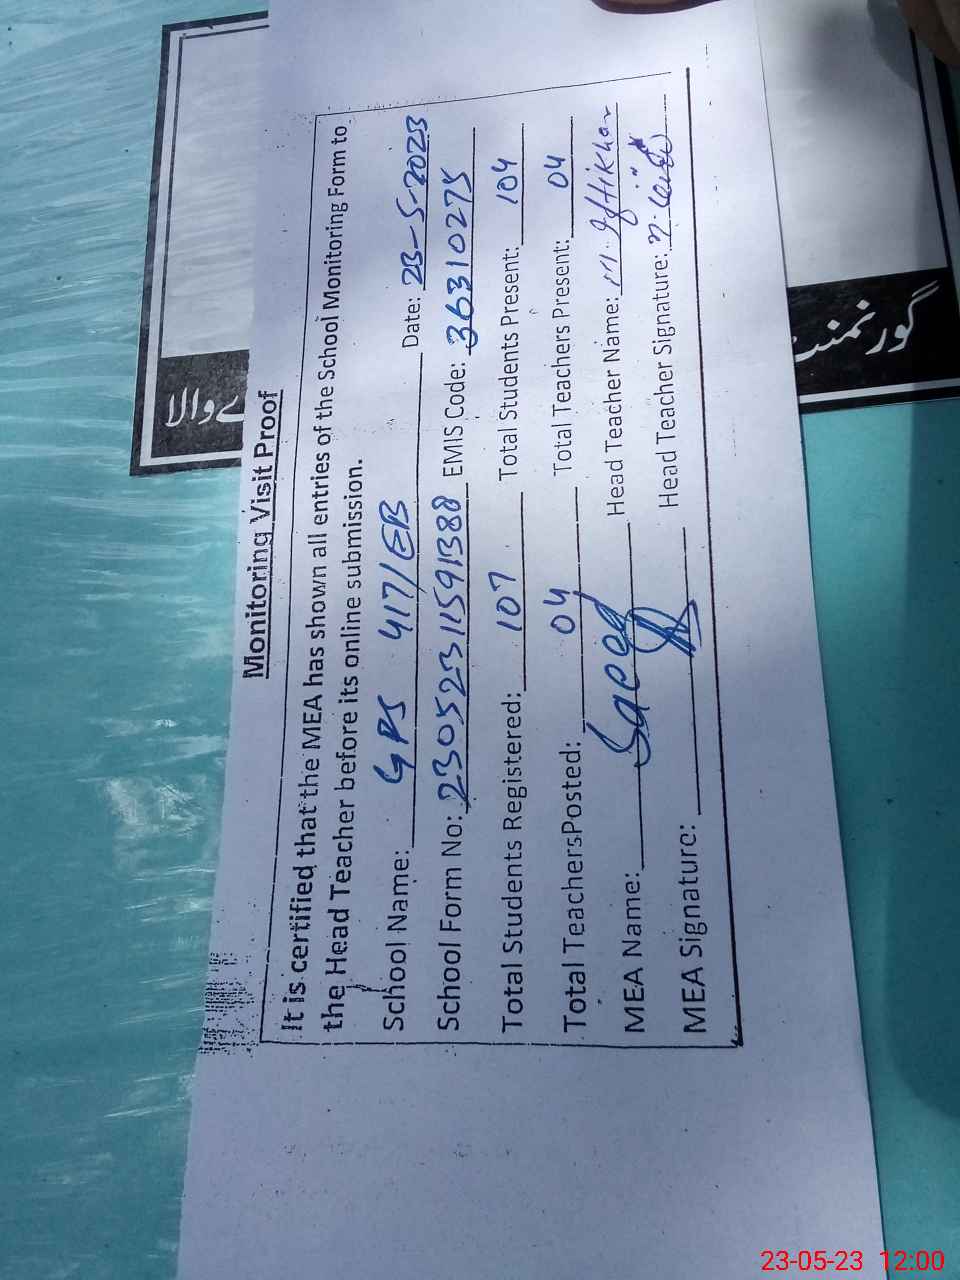 Monitoring Visit Proof
It is certified that the MEA has shown all entries of the School Monitoring Form to
the Head Teacher before its online submission.
School Name: GPS 417/EB Date: 23-5-2023
School Form No: 23052311591388 EMIS Code: 36310275
Total Students Registered: 107 Total Students Present: 104
Total Teachers Posted: 04 Total Teachers Present: 04
MEA Name: Saeed Head Teacher Name: M. Iftikhar
MEA Signature: Head Teacher Signature:
گورنمنٹ
والا
23-05-23 12:00